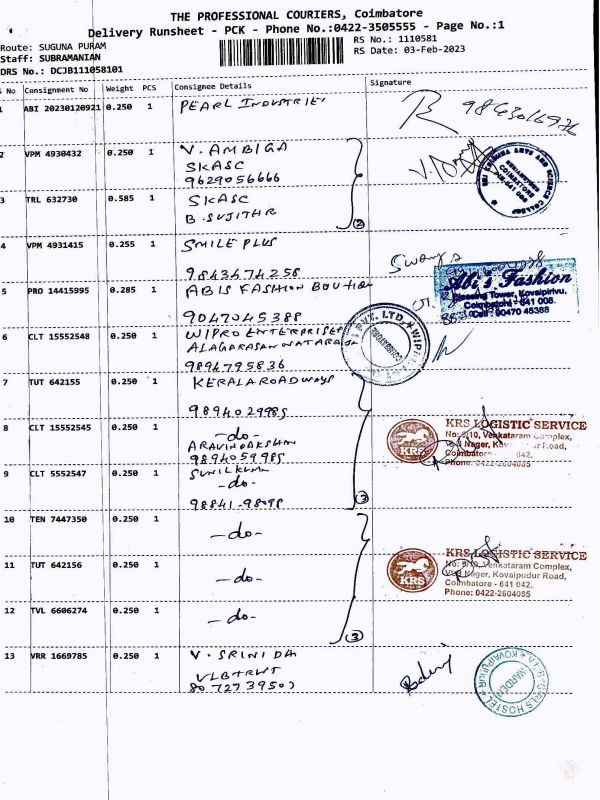 THE PROFESSIONAL COURIERS, Coimbatore
Delivery Runsheet - PCK - Phone No.:0422-3505555 - Page No.:1
Route: SUGUNA PURAM
RS No.: 1110581
Staff: SUBRAMANIAN
RS Date: 03-Feb-2023
DRS No.: DCJB111058101
S No Consignment No Weight PCS Consignee Details Signature
1 ABI 20230120921 0.250 1 PEARL INDUSTRIES
2 VPM 4930432 0.250 1 V. AMBIGA
SKASC
9629056666
3 TRL 632730 0.585 1 SKASC
B. SUJITHR
②
4 VPM 4931415 0.255 1 SMILE PLUS
9843474258
5 PRO 14415995 0.285 1 ABIS FASHION
9047045388
Abi's Fashion
Blessing Tower, Kovaipirivu,
Coimbatore - 641 008.
Cell: 90470 45388
6 CLT 15552548 0.250 1 WIPRO ENTERPRISES
ALAGARASAN NATARAJ
9894795836
7 TUT 642155 0.250 1 KERALA ROADWAYS
9894029985
8 CLT 15552545 0.250 1 -do-
ARAVINDAKSHAN
9894059985
KRS LOGISTIC SERVICE
No: 9/10, Venkataram Complex,
Nager, Road,
Coimbatore 042.
Phone: 0422-2604085
KRS
9 CLT 5552547 0.250 1 SUNIL KUMAR
-do-
98841-98098
③
10 TEN 7447350 0.250 1 -do-
11 TUT 642156 0.250 1 -do-
KRS LOGISTIC SERVICE
No: 9/10, Venkataram Complex,
Nager, Kovaipudur Road,
Coimbatore - 641 042.
Phone: 0422-2604085
KRS
12 TVL 6606274 0.250 1 -do-
③
13 VRR 1669785 0.250 1 V. SRINIDA
VLBTRWT
8072739507
WARDEN
GIRLS HOSTEL